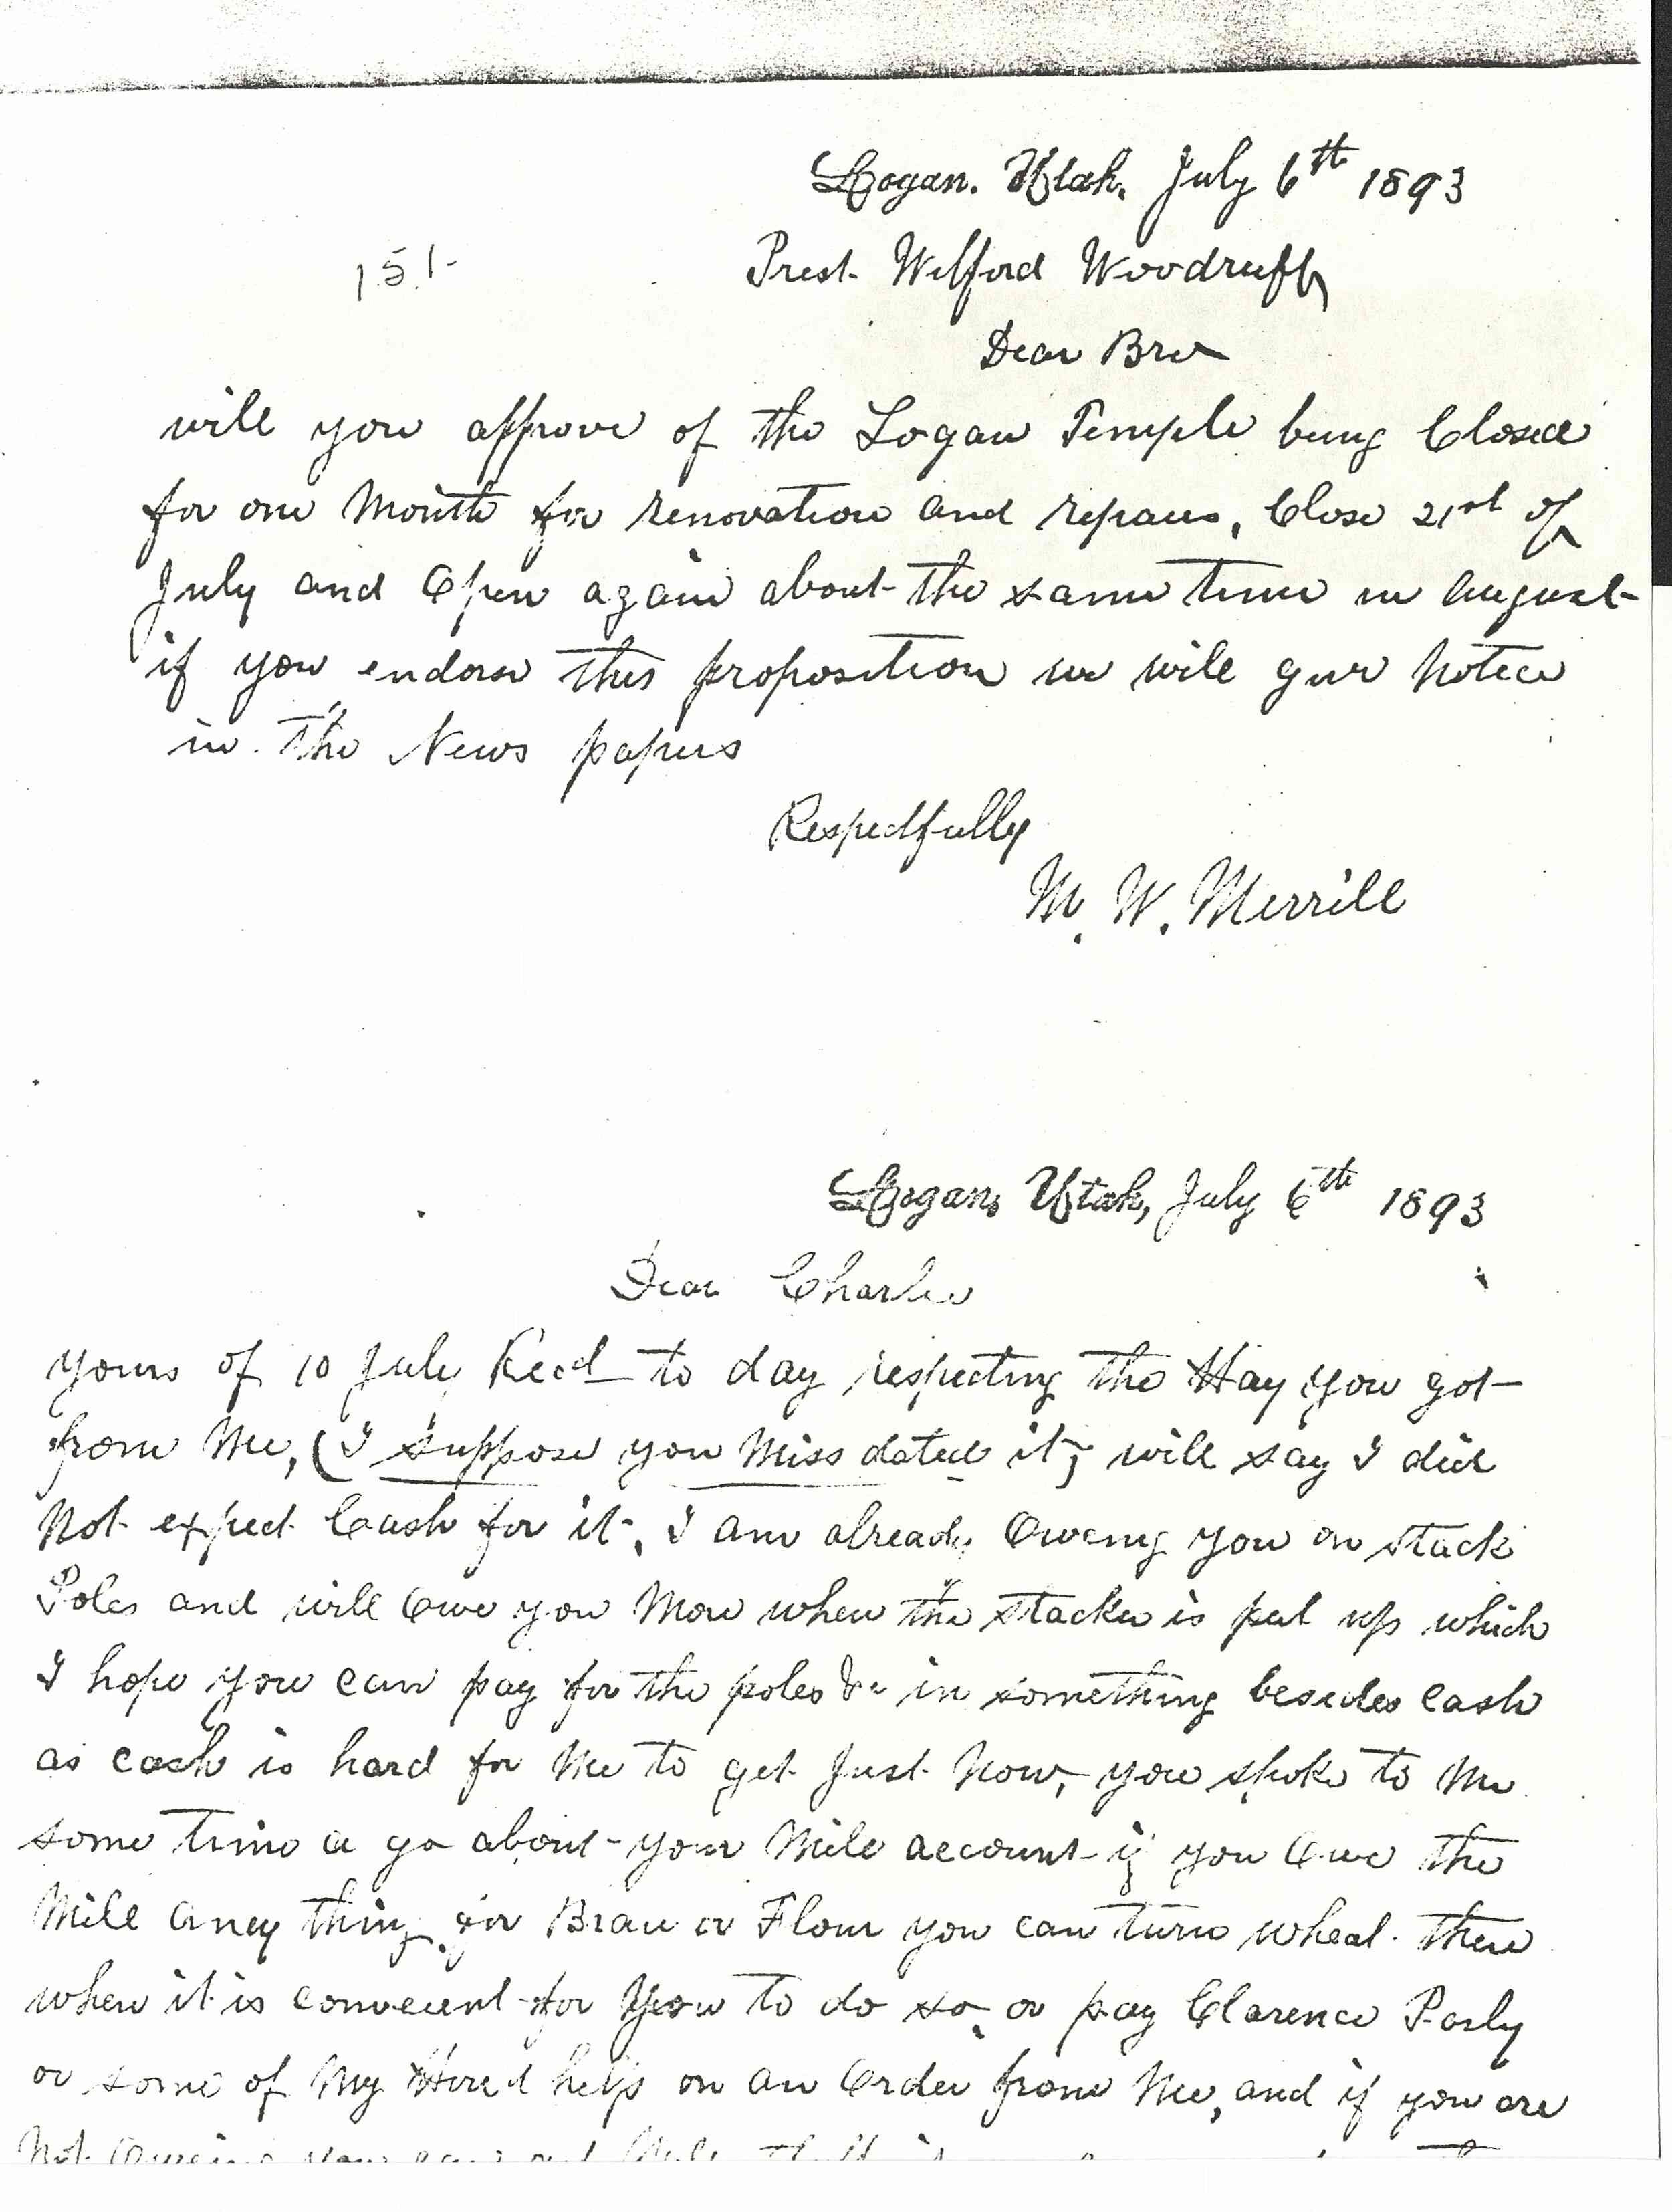 Logan. Utah, July 6th 1893
151-
Prest. Wilford Woodruff
Dear Bro
will you approve of the Logan Temple being Closed
for one Month for renovation and repairs, Close 21st of
July and Open again about the same time in August
if you endorse this proposition we will give Notice
in the News papers
Respectfully
M. W. Merrill
Logan, Utah, July 6th 1893
Dear Charlie
yours of 10 July Recd to day respecting the Hay you got
from Me, (I suppose you Miss dated it) will say I did
Not expect Cash for it, I am already Oweing you on stack
Poles and will Owe you More when the stacker is put up which
I hope you can pay for the poles &c in something besides cash
as cash is hard for Me to get Just Now, you spoke to Me
some time a go about your Mill account if you Owe the
Mill Aney thing for Bran or Flour you can turn wheat there
when it is convecent for You to do so, or pay Clarence Parly
or some of My Hired help on an Order from Me, and if you are
Not Oweing you can